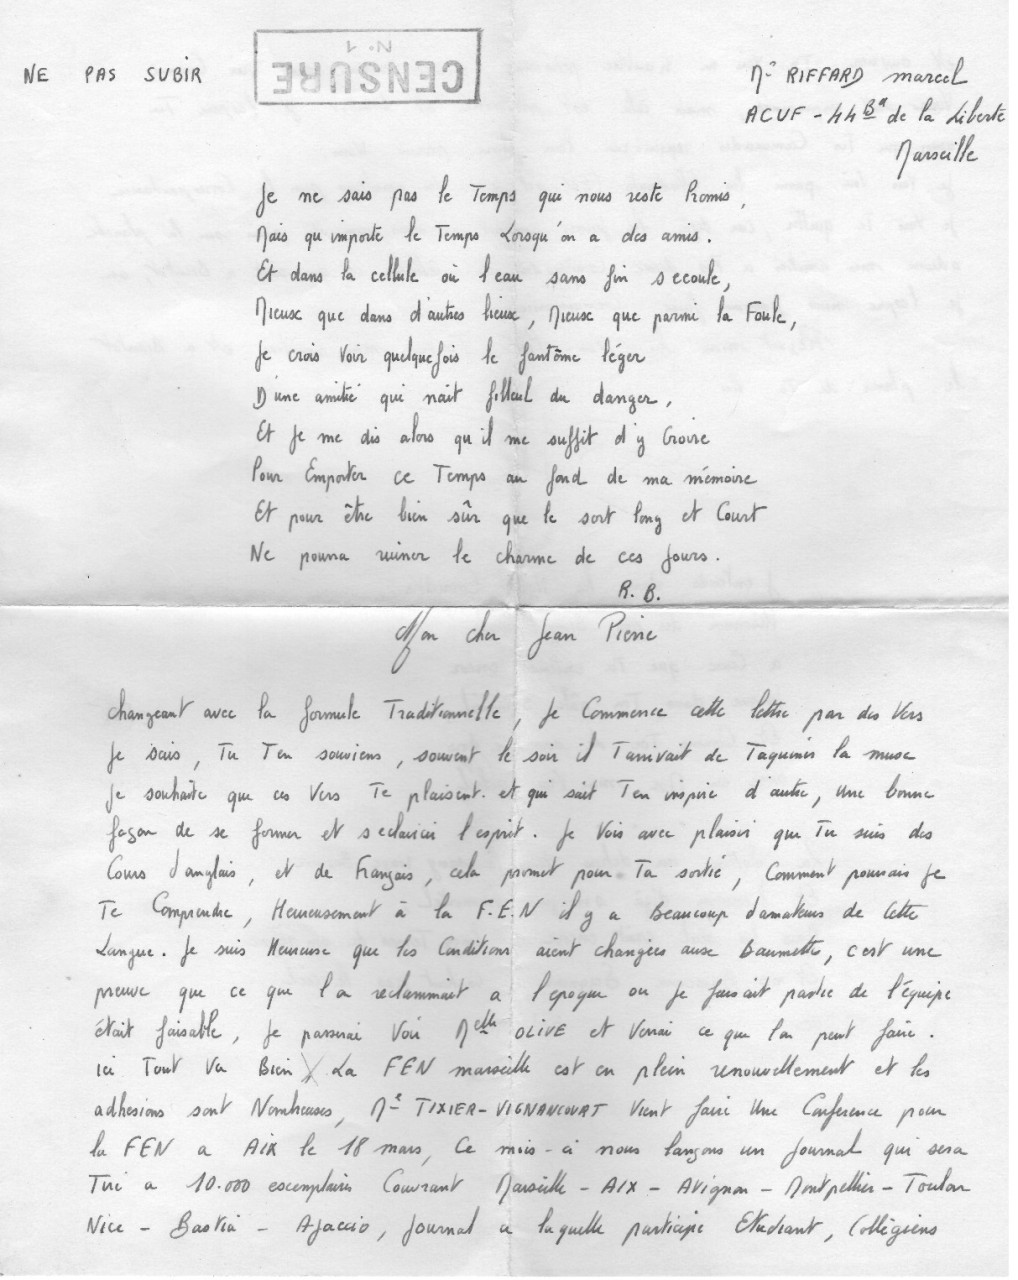 CENSURE
N.1
NE PAS SUBIR
Mr RIFFARD marcel
ACUF - 44 Bd de la Liberte
Marseille
Je ne sais pas le Temps qui nous reste Promis,
Mais qu'importe le Temps Lorsqu'on a des amis.
Et dans la cellule où l'eau sans fin s'ecoule,
Mieux que dans d'autres lieux, Mieux que parmi la Foule,
Je crois voir quelquefois le fantôme léger
D'une amitié qui nait filleul du danger,
Et Je me dis alors qu'il me suffit d'y Croire
Pour Emporter ce Temps au fond de ma mémoire
Et pour être bien sûr que le sort long et Court
Ne pourra ruiner le charme de ces Jours.
R. B.
Mon cher Jean Pierre
changeant avec la formule Traditionnelle, Je Commence cette lettre par des Vers
Je sais, Tu T'en souviens, souvent le soir il T'arrivait de Taquiner la muse
Je souhaite que ces Vers Te plaisent. et qui sait T'en inspire d'autre, une bonne
façon de se former et s'eclaircir l'esprit. Je Vois avec plaisir que Tu suis des
Cours d'anglais, et de Français, cela promet pour Ta sortié, Comment pourrais Je
Te Comprendre, Heureusement à la F.E.N il y a Beaucoup d'amateurs de Cette
Langue. Je suis Heureuse que les Conditions aient changées aux Baumette, c'est une
preuve que ce que l'on reclammait a l'epoque ou Je faisait partie de l'équipe
était faisable, Je passerai Voir Melle OLIVE et Verrai ce que l'on peut faire.
ici Tout Va Bien La FEN marseille est en plein renouvellement et les
adhesions sont Nombreuses, Me TIXIER-VIGNANCOURT Vient faire Une Conference pour
la FEN a AIX le 18 mars, Ce mois-ci nous lançons un Journal qui sera
Tiré a 10.000 exemplaires Couvrant Marseille - AIX - Avignon - Montpellier - Toulon
Nice - Bastia - Ajaccio, Journal a laquelle participe Etudiant, Collégiens